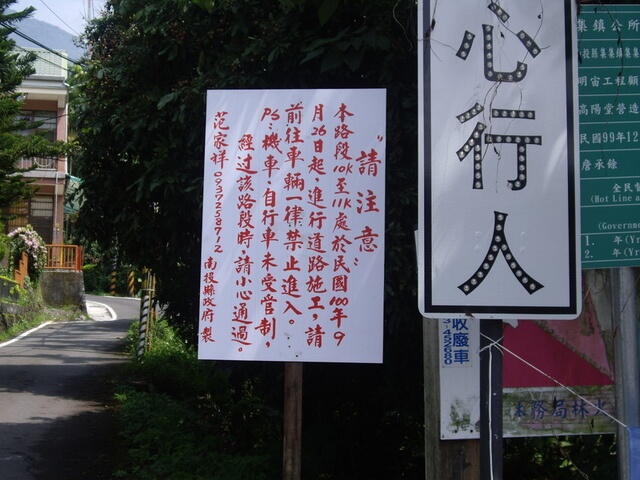 "請注意"
本路段10K至11K處於民國100年9
月26日起，進行道路施工，請
前往車輛一律禁止進入。
PS：機車、自行車未受管制，
經過該路段時請小心通過。
范家祥 0937258712 南投縣政府製
心行人
集鎮公所
投縣集集鎮集
明宙工程顧
高陽堂營造
民國99年12
詹承餘
全民督
(Hot Line a
(Governme
1. 年(Yr
2. 年(Yr
收廢車
3-452680
林務局